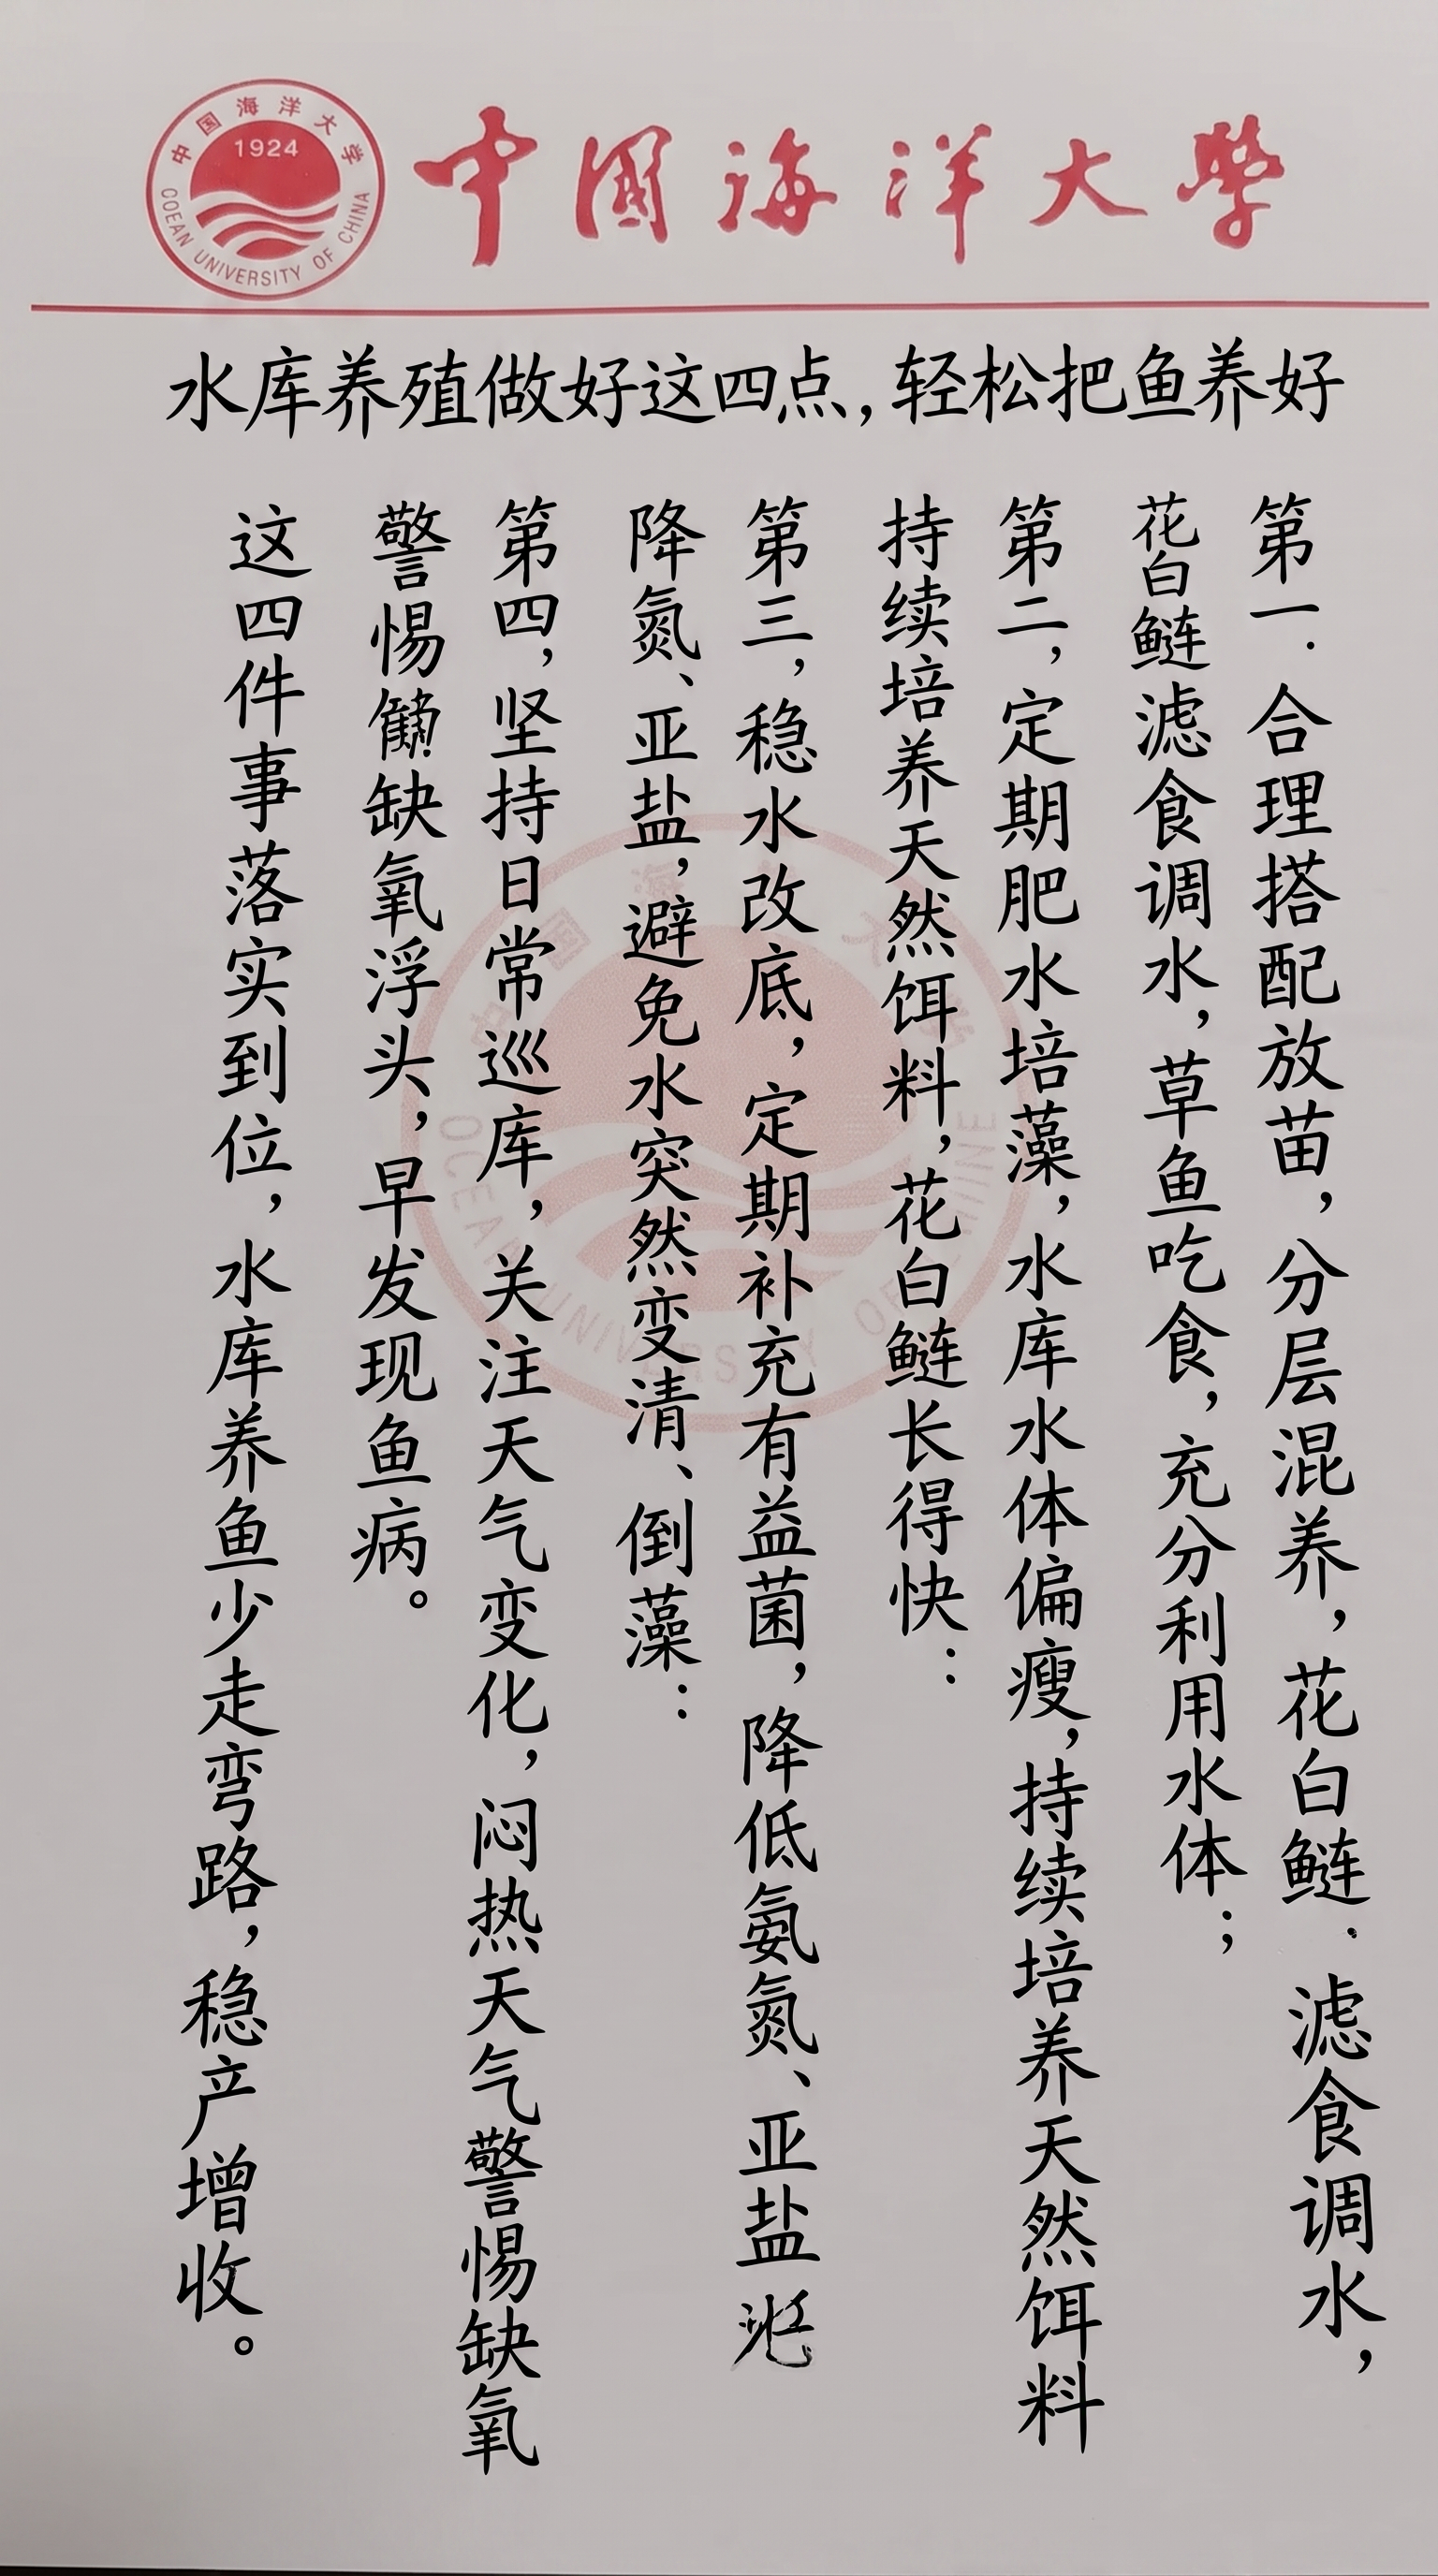 中国海洋大学
1924
COEAN UNIVERSITY OF CHINA
中國海洋大學
水库养殖做好这四点，轻松把鱼养好
第一．合理搭配放苗，分层混养，花白鲢．滤食调水，
花白鲢滤食调水，草鱼吃食，充分利用水体；
第二，定期肥水培藻，水库水体偏瘦，持续培养天然饵料
持续培养天然饵料，花白鲢长得快：
第三，稳水改底，定期补充有益菌，降低氨氮、亚盐
降氮、亚盐，避免水突然变清、倒藻：
第四，坚持日常巡库，关注天气变化，闷热天气警惕缺氧
警惕缺氧浮头，早发现鱼病。
这四件事落实到位，水库养鱼少走弯路，稳产增收。